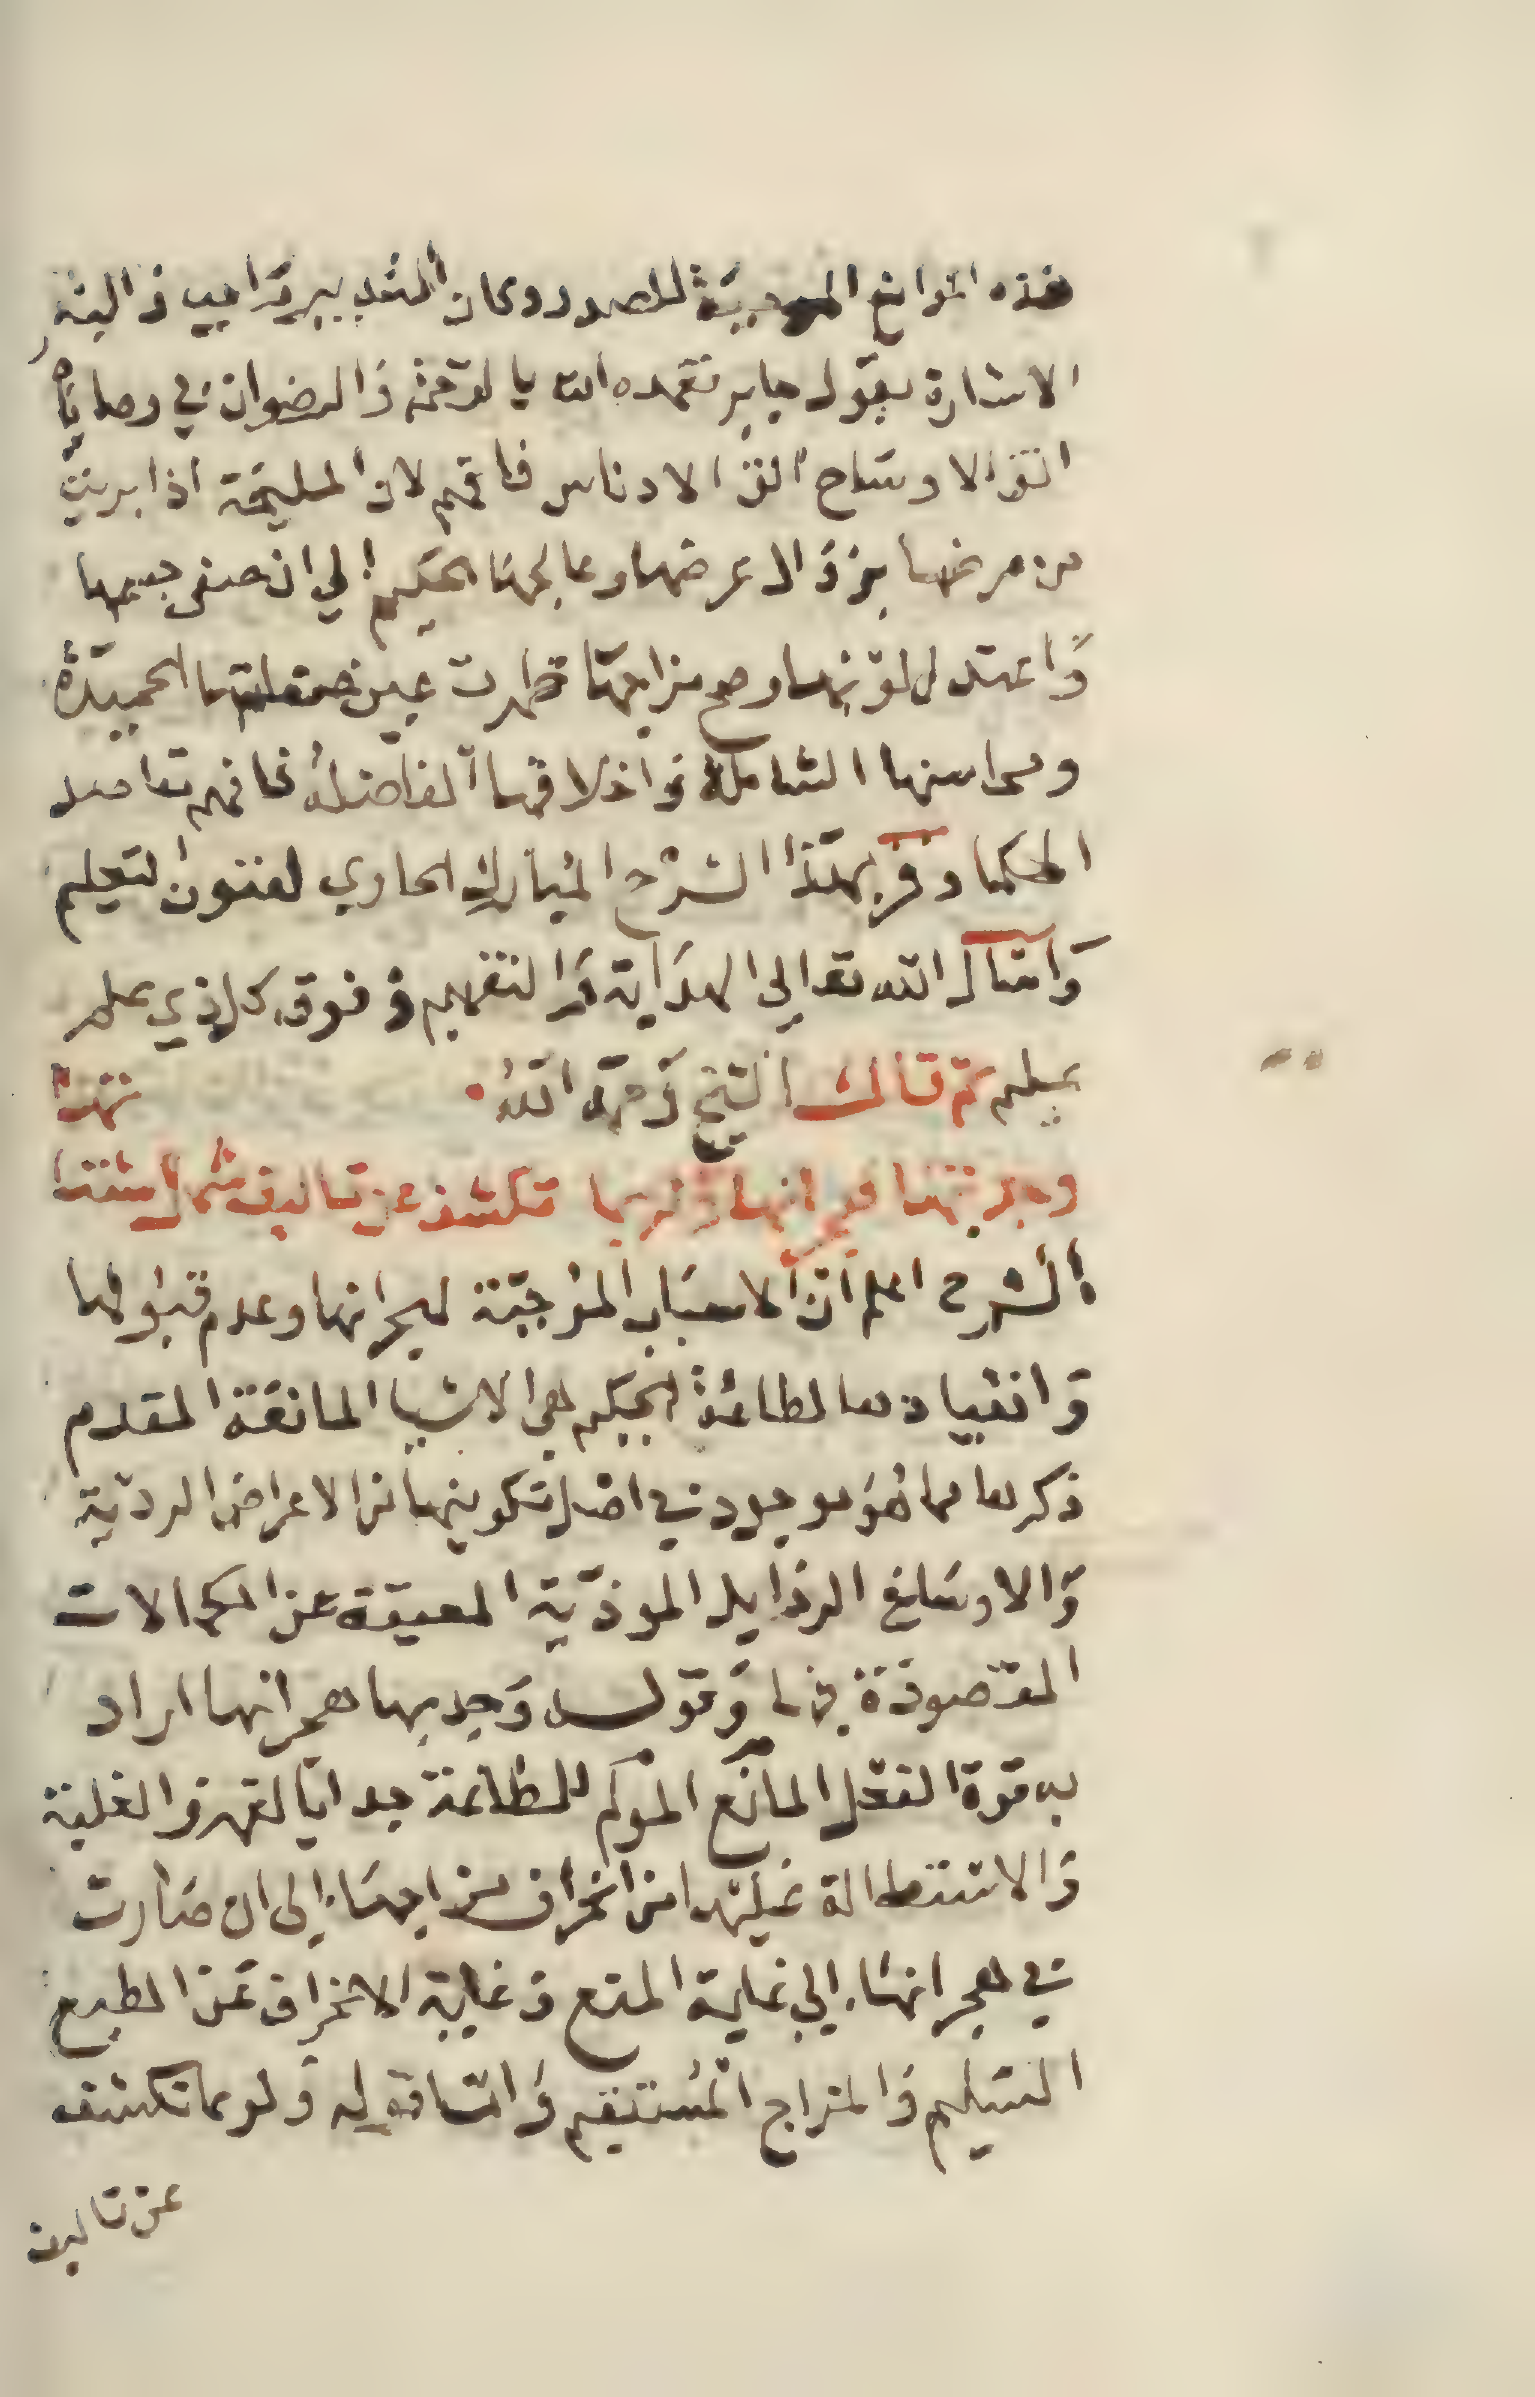 هذه الموانع الموجبة للصدود وكان التدبير مراتب واليه
الاشارة بقول جابر تغمده الله بالرحمة والرضوان في وصاياه
انق الاوساخ انق الادناس فافهم لان المليحة اذا بريت
من مرضها بزوال عرضها وعالجها الحكيم الي ان صفي جسمها
واعتدل لونها وصح مزاجها ظهرت عين صفاتها الحميدة
ومحاسنها الشاملة واخلاقها الفاضلة فافهم مقاصد
الحكما وفز بهذا الشرح المبارك الحاوي لفنون التعليم
واسال الله تعالي الهداية والتفهيم وفوق كل ذي علم
عليم ثم قال الشيخ رحمه الله نهدا
وجد بها هجرانها ولربما تكشف عن تاليف شمل اشتتا
الشرح اعلم ان الاسباب الموجبة لهجرانها وعدم قبولها
وانقيادها لطاعة الحكيم هي الاشيا المانعة المقدم
ذكرها مما هو موجود في اصل تكوينها من الاعراض الردية
والاوساخ الرذايل الموذية المعيقة عن الكمالات
المقصودة فيها وقوله وجد بها هجرانها اراد
به قوة الفعل المانع الموكم للطاعة جدا بالقهر والغلبة
والاستطالة عليها من انحراف مزاجها الى ان صارت
في هجرانها الي غاية المنع وغاية الانحراف عن الطبع
السليم والمزاج المستقيم واما قوله ولربما تكشف
عن تاليف